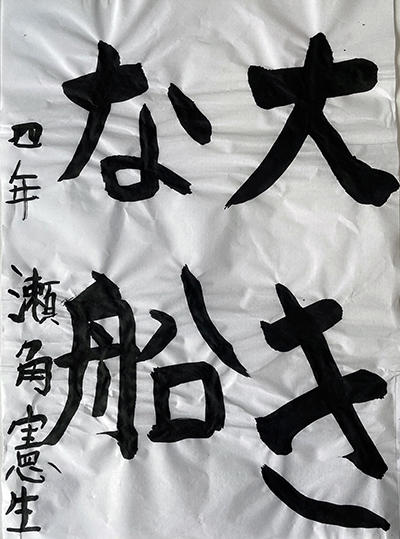 大き
な船
四年 瀬角憲生